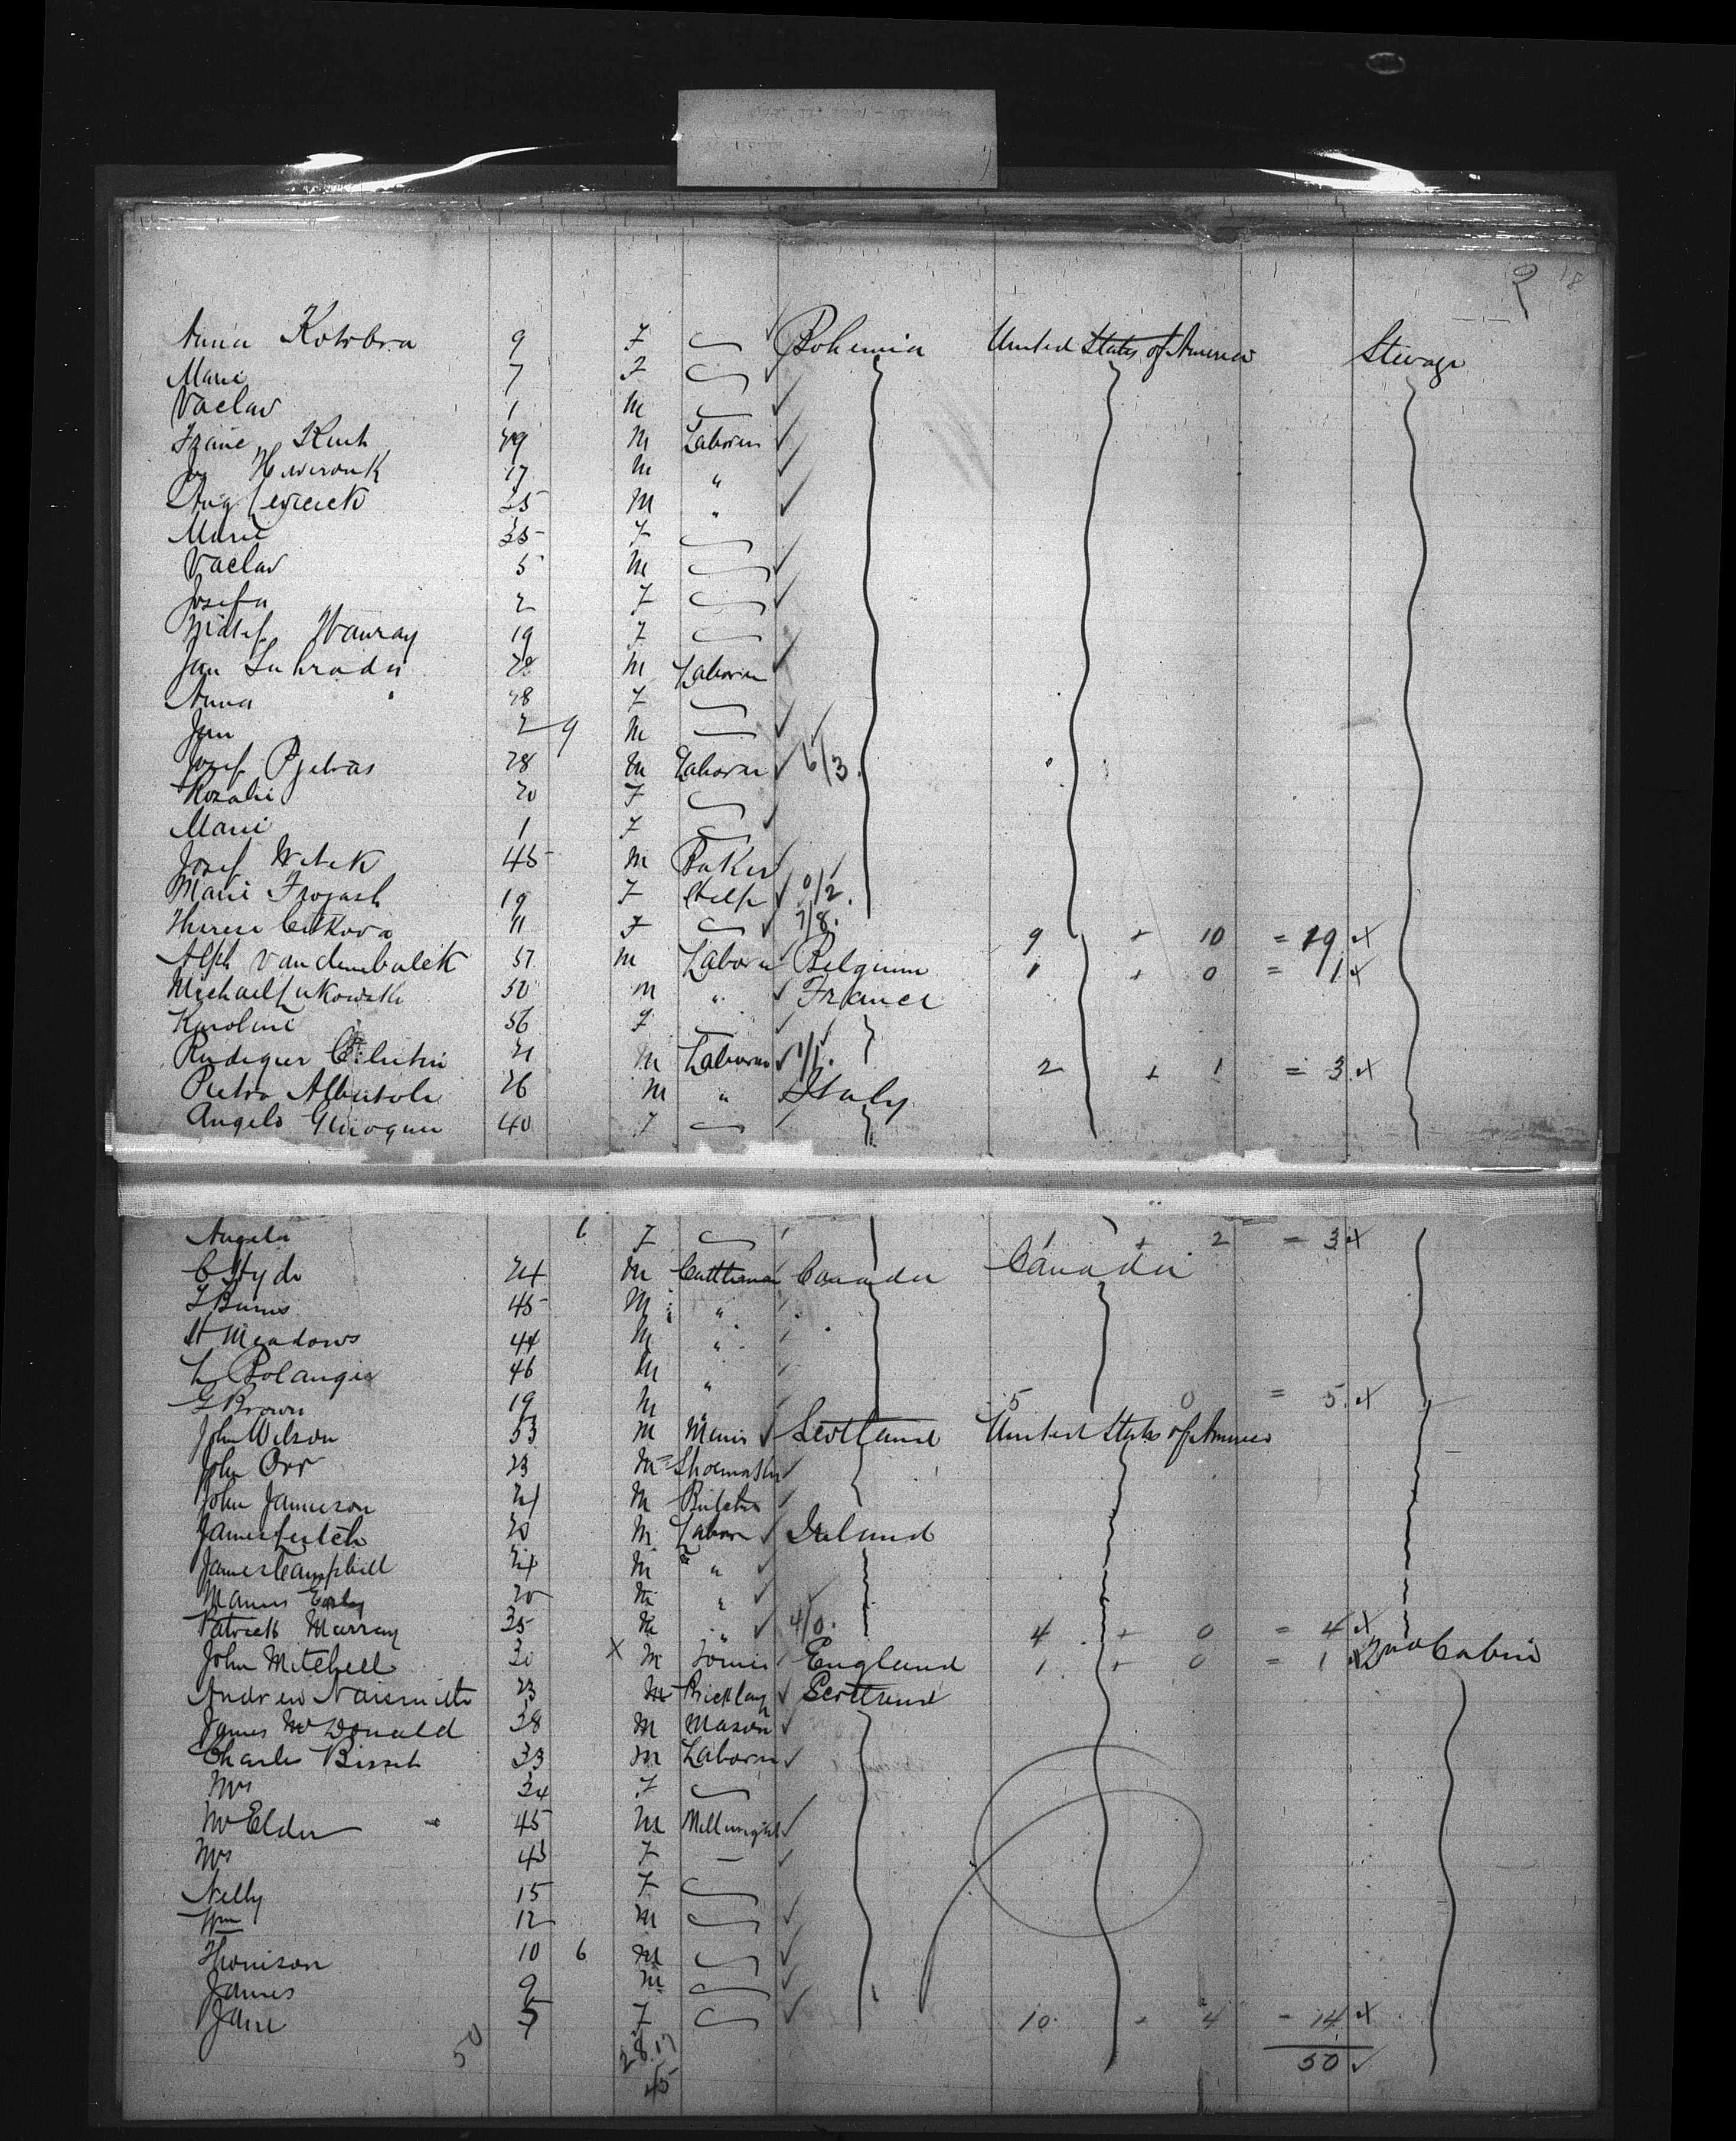 2 18
Anna Kotrbra 9 F Bohemia United States of America Steerage
Marie 7 F
Vaclav 1 M
M Laborer
17 M "
Aug 25 M "
Marie 35 F
Vaclav 5 M
Josefa 2 F
19 F
Jan M Laborer
Anna " 28 F
Jan 2 9 M
Josef Pjetras 28 M Laborer 6/3.
Rozalie 20 F
Marie 1 F
Josef Witek 45 M Baker
Marie 19 F 0/2.
Therese Citkova 11 F 7/8. 9 + 10 = 19 x
Alph Vandembulck 57 M Laborer Belgium 1 + 0 = 1 x
Michael Lukowski 50 M " France
Karoline 56 F
Rudiger 21 M Laborer 1/1. 2 + 1 = 3 x
Pietro Albertoli 26 M " Italy
Angelo 40 F
Angela 6 F 1 + 2 = 3 x
C Hyde 24 M Cattleman Canada Canada
T Burns 45 M "
H Meadows 44 M "
L Bolanger 46 M "
G Brown 19 M " 5 0 = 5 x
John Wilson 53 M Scotland United States of America
John Orr 23 M Shoemaker
John Jamieson 21 M Butcher
James Leitch 20 M Labor Ireland
James Campbell 24 M "
Manus 20 M "
Patrick Murray 35 M " 4/0. 4 + 0 = 4 x
John Mitchell 30 X M England 1 + 0 = 1 x 2nd Cabin
Andrew Naismith 23 M Bricklay Scotland
James McDonald 38 M Mason
Charles Bisset 33 M Laborer
Mrs 34 F
Mr Elder 45 M Millwright
Mrs 43 F -
Nelly 15 F
Wm 12 M
Thomson 10 6 M
James 9 M
Jane 5 F 10 + 4 - 14 x
50 28.17 50
45